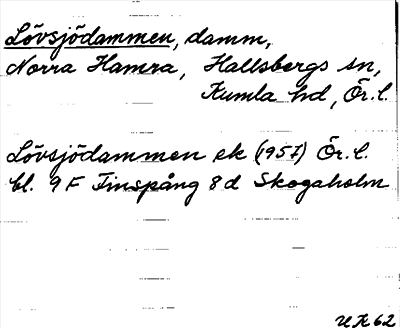 Lövsjödammen, damm,
Norra Hamra, Hallsbergs sn,
Kumla hd, Ör. l.
Lövsjödammen ek (1957) Ör. l.
bl. 9 F Finspång 8 d Skogaholm
U R 62